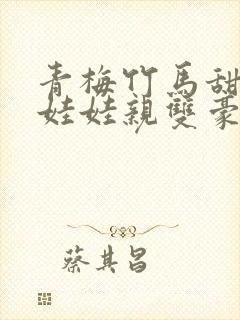 青梅竹馬甜
娃娃親雙豪
蔡其昌